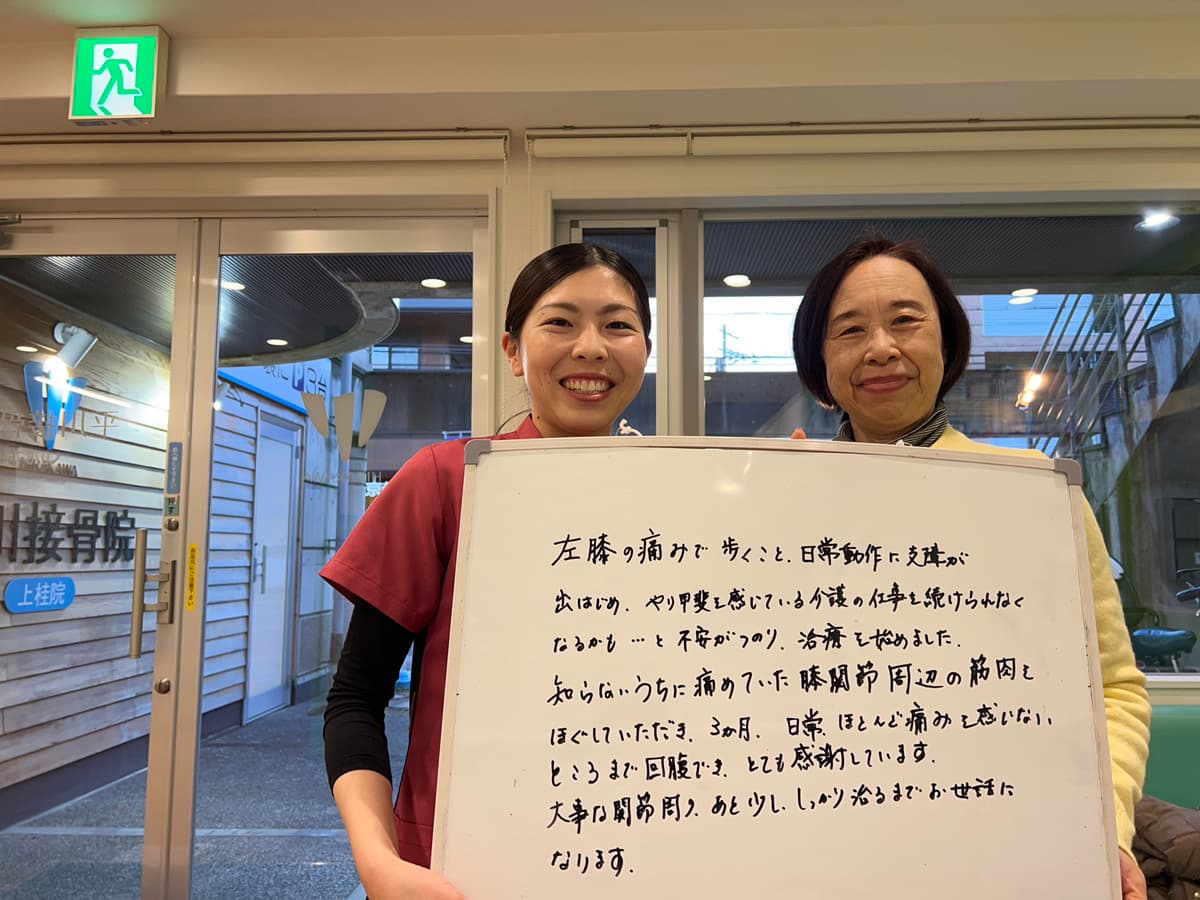 左膝の痛みで歩くこと、日常動作に支障が
出はじめ、やり甲斐を感じている介護の仕事を続けられなく
なるかも…と不安がつのり、治療を始めました。
知らないうちに痛めていた膝関節周辺の筋肉を
ほぐしていただき、3か月、日常、ほとんど痛みを感じない
ところまで回腹でき、とても感謝しています。
大事な関節周り、あと少し、しっかり治るまでお世話に
なります。
川接骨院
上桂院
P 3台
押す